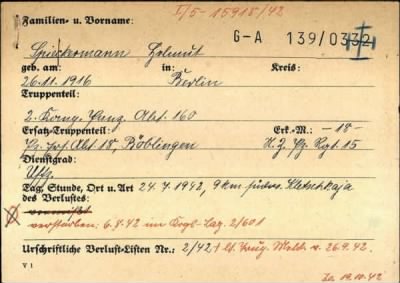 I/5-15918/42
Familien- u. Vorname:
G-A 139/0332
Spieckermann Helmut
geb. am: in: Kreis:
26.11.1916 Berlin
Truppenteil:
2. Komp. Panz. Abt. 160
Ersatz-Truppenteil: Erk.-M.: -18-
Pz. Ers. Abt. 18, Böblingen
Dienstgrad:
Uffz.
Tag, Stunde, Ort u. Art 24.7.1942, 9 km südw. Kletschkaja
des Verlustes:
vermißt
verstorben: 6.8.42 im Krgs-Laz. 2/601
Urschriftliche Verlust-Listen Nr.: 2/42 + lt. Zug. Meld. v. 26.9.42.
V 1
19.10.42